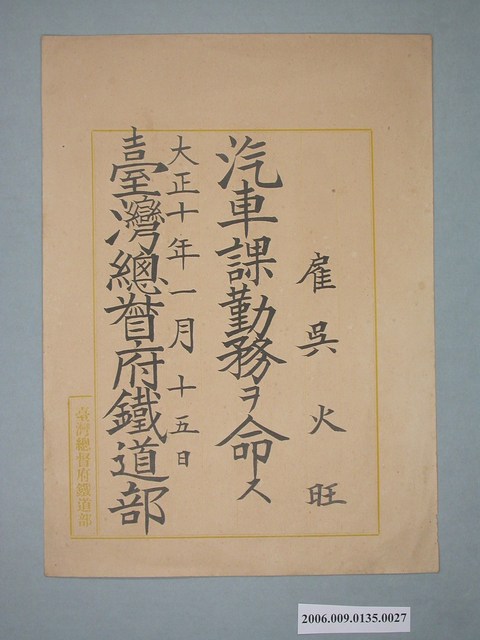 雇 吳火旺
汽車課勤務ヲ命ス
大正十年一月十五日
臺灣總督府鐵道部
臺灣總督府鐵道部
2006.009.0135.0027